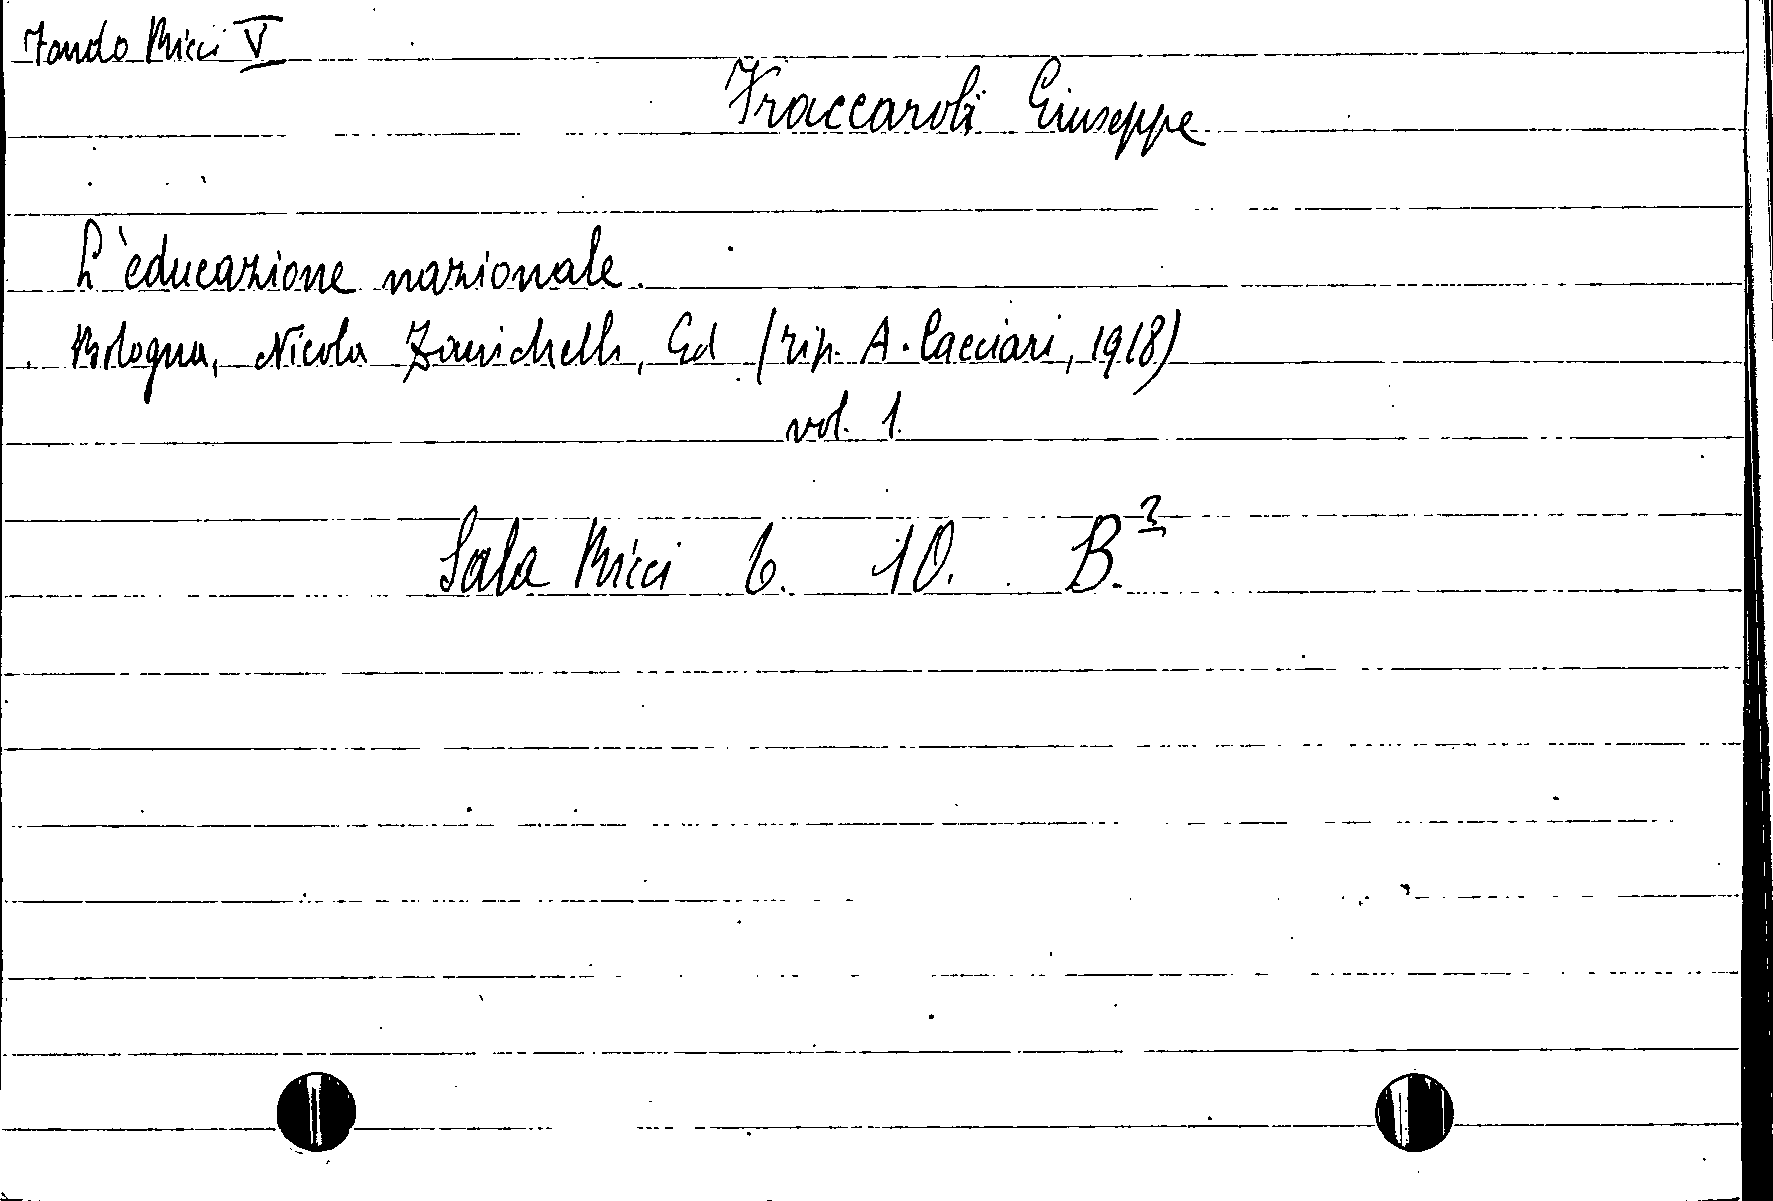 Fondo Ricci V
Fraccaroli Giuseppe
L'educazione nazionale.
Bologna, Nicola Zanichelli, Ed (tip. A. Cacciari, 1918)
vol. 1.
Sala Ricci 6. 10. B.²